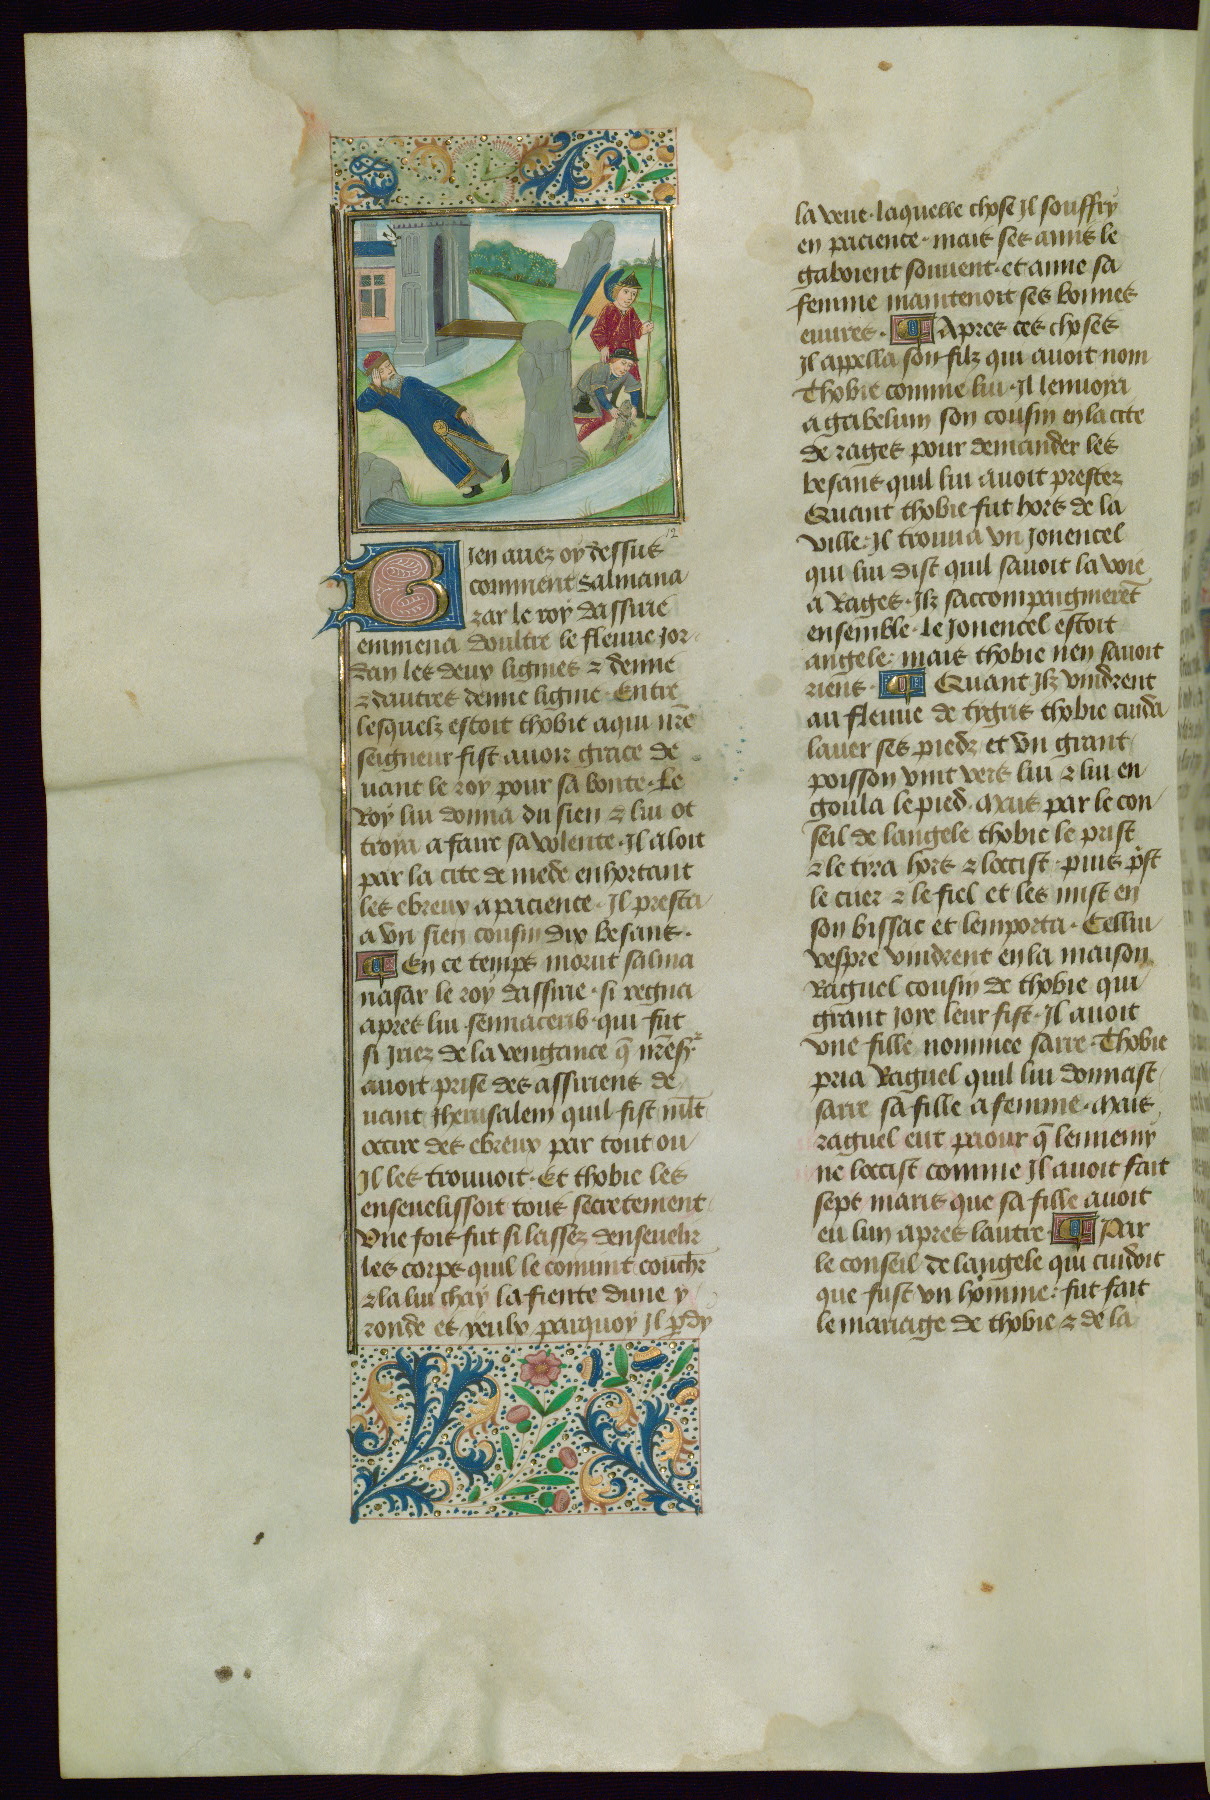 12
Bien auez oy dessus
comment Salmana
zar le roy dassirie
emmena doultre le fleuue Jor
dan les deux lignies ⁊ demie
⁊ dautres demie lignie. Entre
lesquelz estoit thobie a qui nr̄e
seigneur fist auoir grace de
uant le roy pour sa bonte. Le
Roy lui donna du sien ⁊ lui ot
troia a faire sa volente. Il aloit
par la cite de mede enhortant
les ebreux a pacience. Il presta
a vn sien cousin dix besans.
En ce temps morut salma
nasar le roy dassirie. si regna
apres lui sennacerib. qui fut
si Iriez de la vengance q̄ nr̄e sr̄
auoit prise des assiriens de
uant Jherusalem quil fist ml̄t
occire des ebreux par tout ou
Il les trouuoit. Et thobie les
enseuelissoit tous secretement
Vne fois fut si lassez denseuelir
les corps quil le conuint couch̄r
⁊ la lui chay la fiente dune y
ronde es yeulx parquoy Il p̄dy
la veue. laquelle chose Il souffry
en pacience. mais ses amis le
gaboient souuent. et anne sa
femme maintenoit ses bonnes
euures. Apres ces choses
Il appella son filz qui auoit nom
Thobie comme lui. Il lenuoya
a gabelum son cousin en la cite
de rages pour demander les
besans quil lui auoit prestez
Quant thobie fut hors de la
ville. Il trouua vn Jouencel
qui lui dist quil sauoit la voie
a Rages. Ilz saccompaignerēt
ensemble. le Jouencel estoit
angele. mais thobie nen sauoit
riens. Quant Ilz vindrent
au fleuue de tygris thobie cuida
lauer ses piedz et vn grant
poisson vint vers lui ⁊ lui en
goula le pied. Mais par le con
seil de langele thobie le prist
⁊ le tyra hors ⁊ loccist. puis p̄st
le cuer ⁊ le fiel et les mist en
son bissac et lemporta. Cellui
vespre vindrent en la maison
Raguel cousin de thobie qui
grant Joye leur fist. Il auoit
vne fille nommee sarre. Thobie
pria Raguel quil lui donnast
sarre sa fille a femme. Mais
raguel eut paour q̄ lennemy
ne loccist comme Il auoit fait
sept maris que sa fille auoit
eu lun apres lautre. Par
le conseil de langele qui cuidoit
que fust vn homme. fut fait
le mariage de thobie ⁊ de la